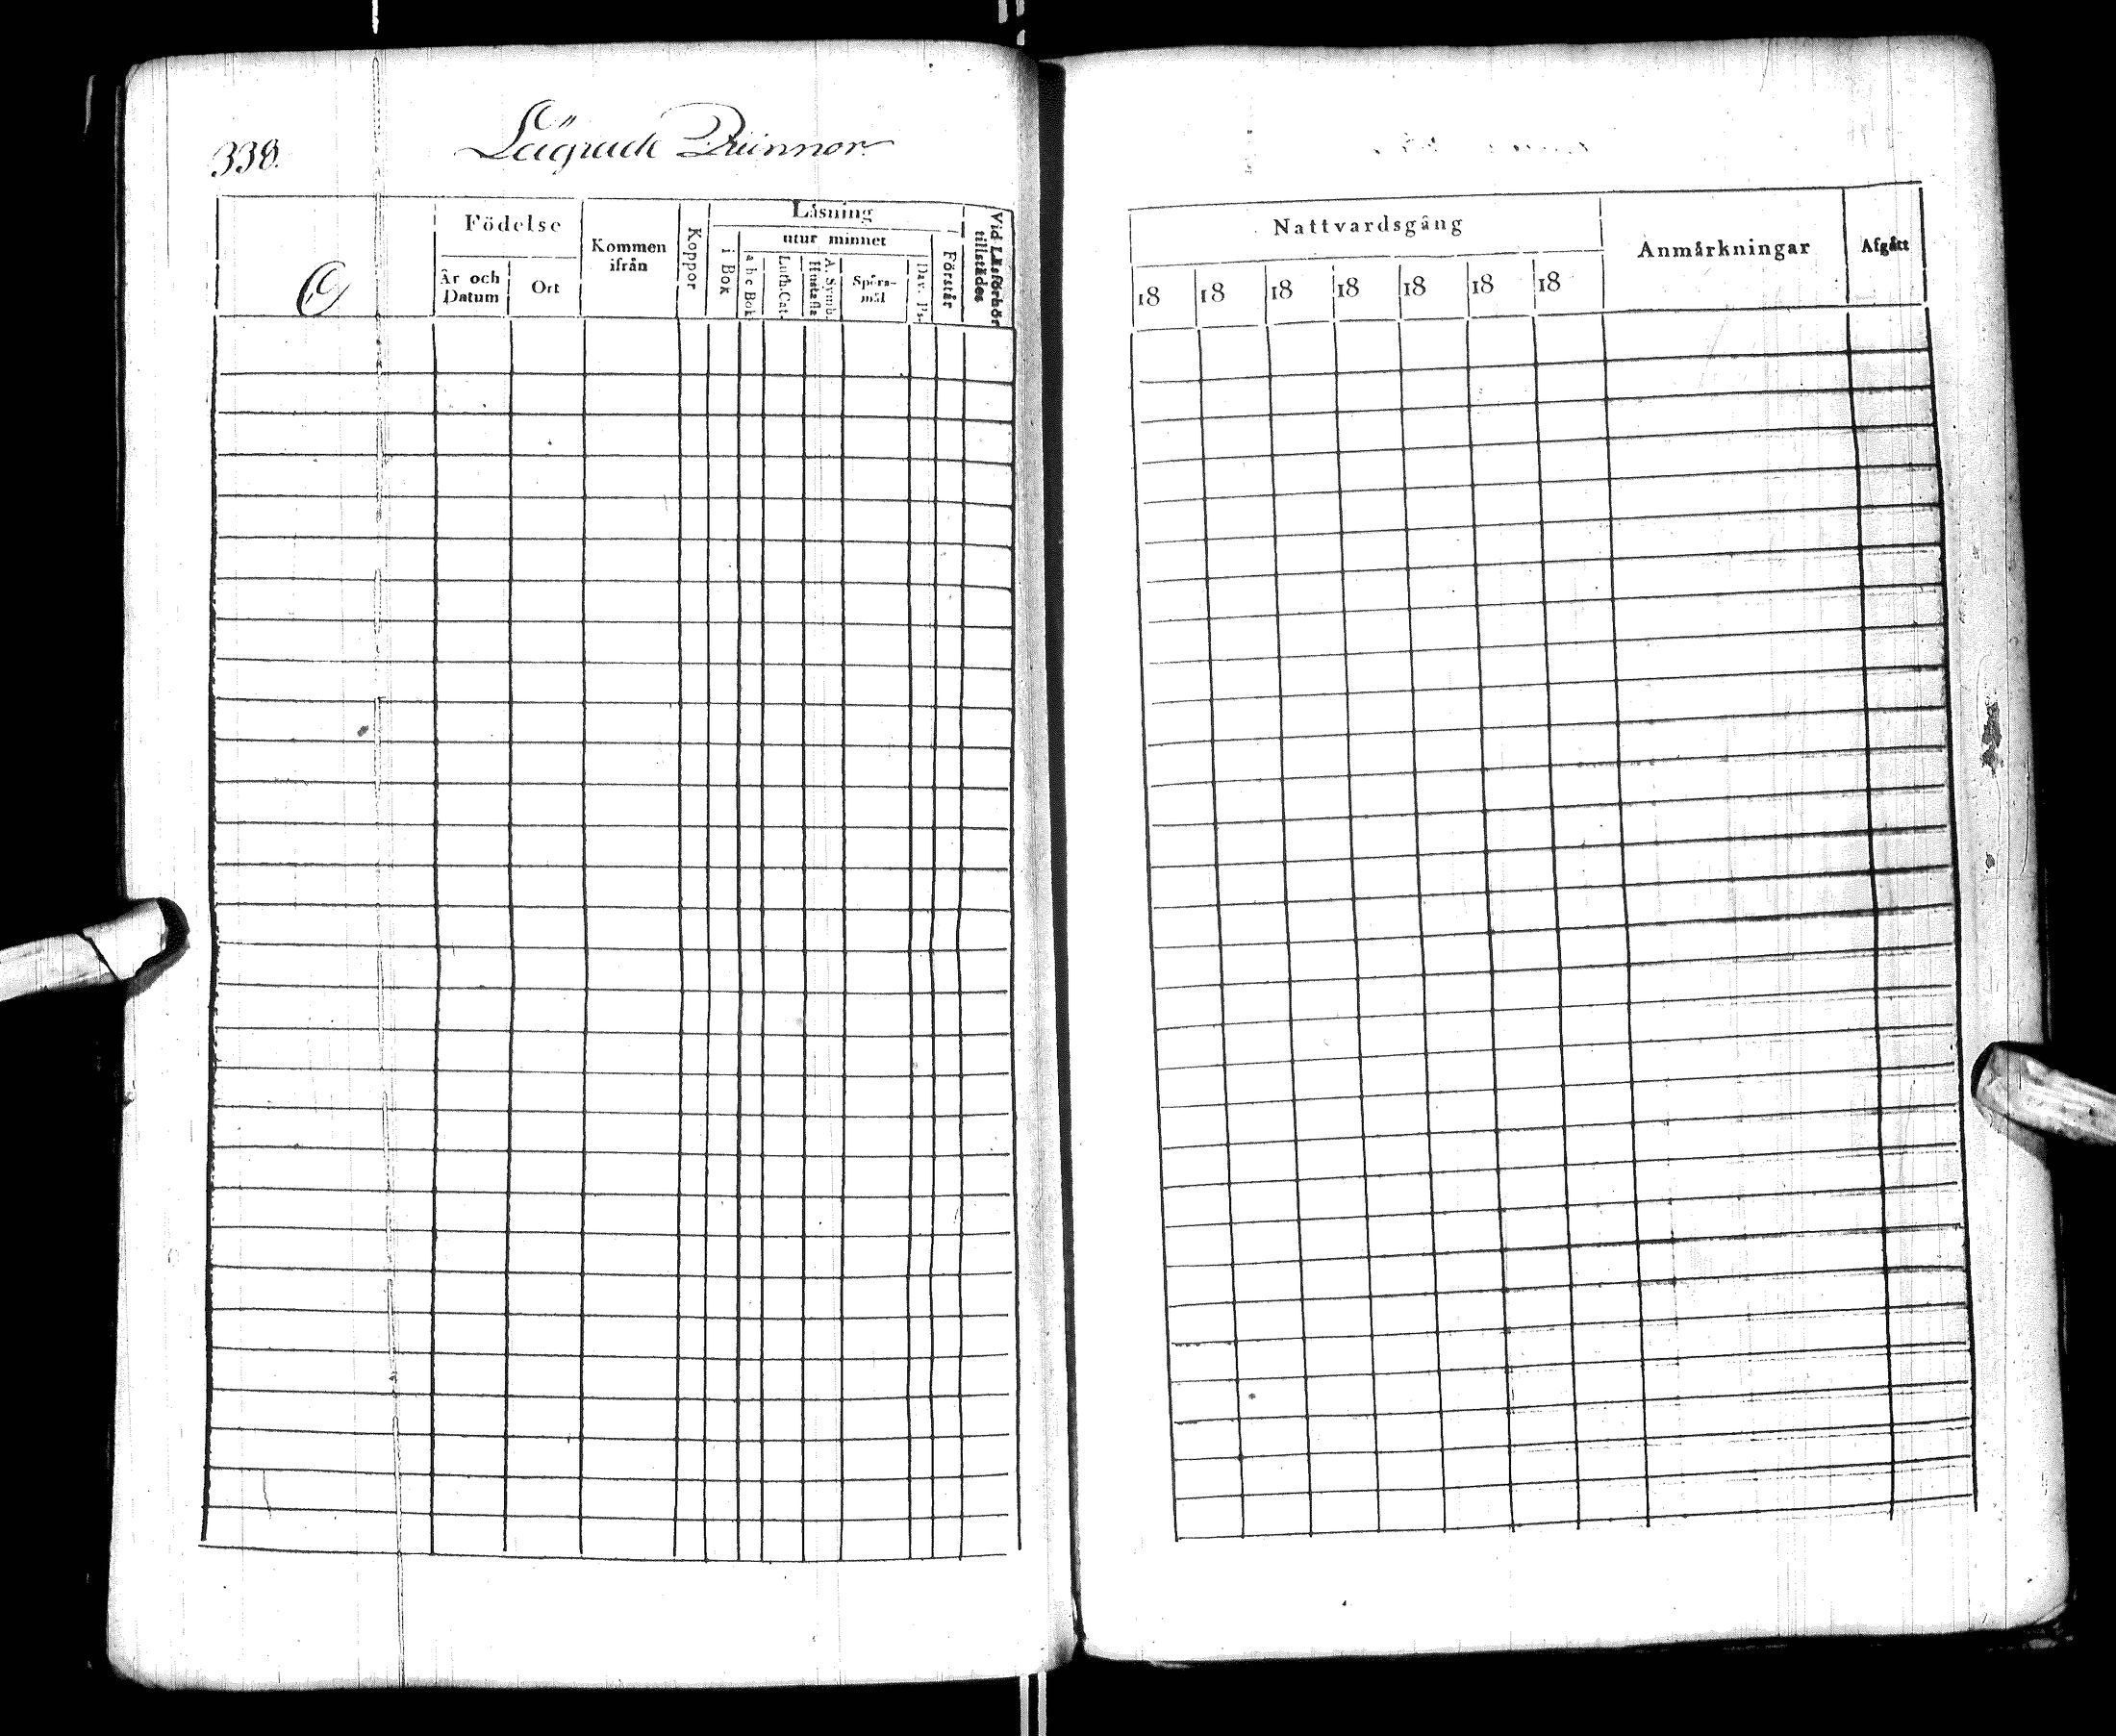 338.
Lägrade Qvinnor
C
Födelse
År och Datum
Ort
Kommen ifrån
Koppor
Läsning
i Bok
utur minnet
a b c Bok
Luth. Cat.
A. Symb. Hustafla
Spörsmål
Dav. Ps.
Förstår
Vid Läsförhör tillstädes
Nattvardsgång
18 18 18 18 18 18 18
Anmärkningar
Afgått